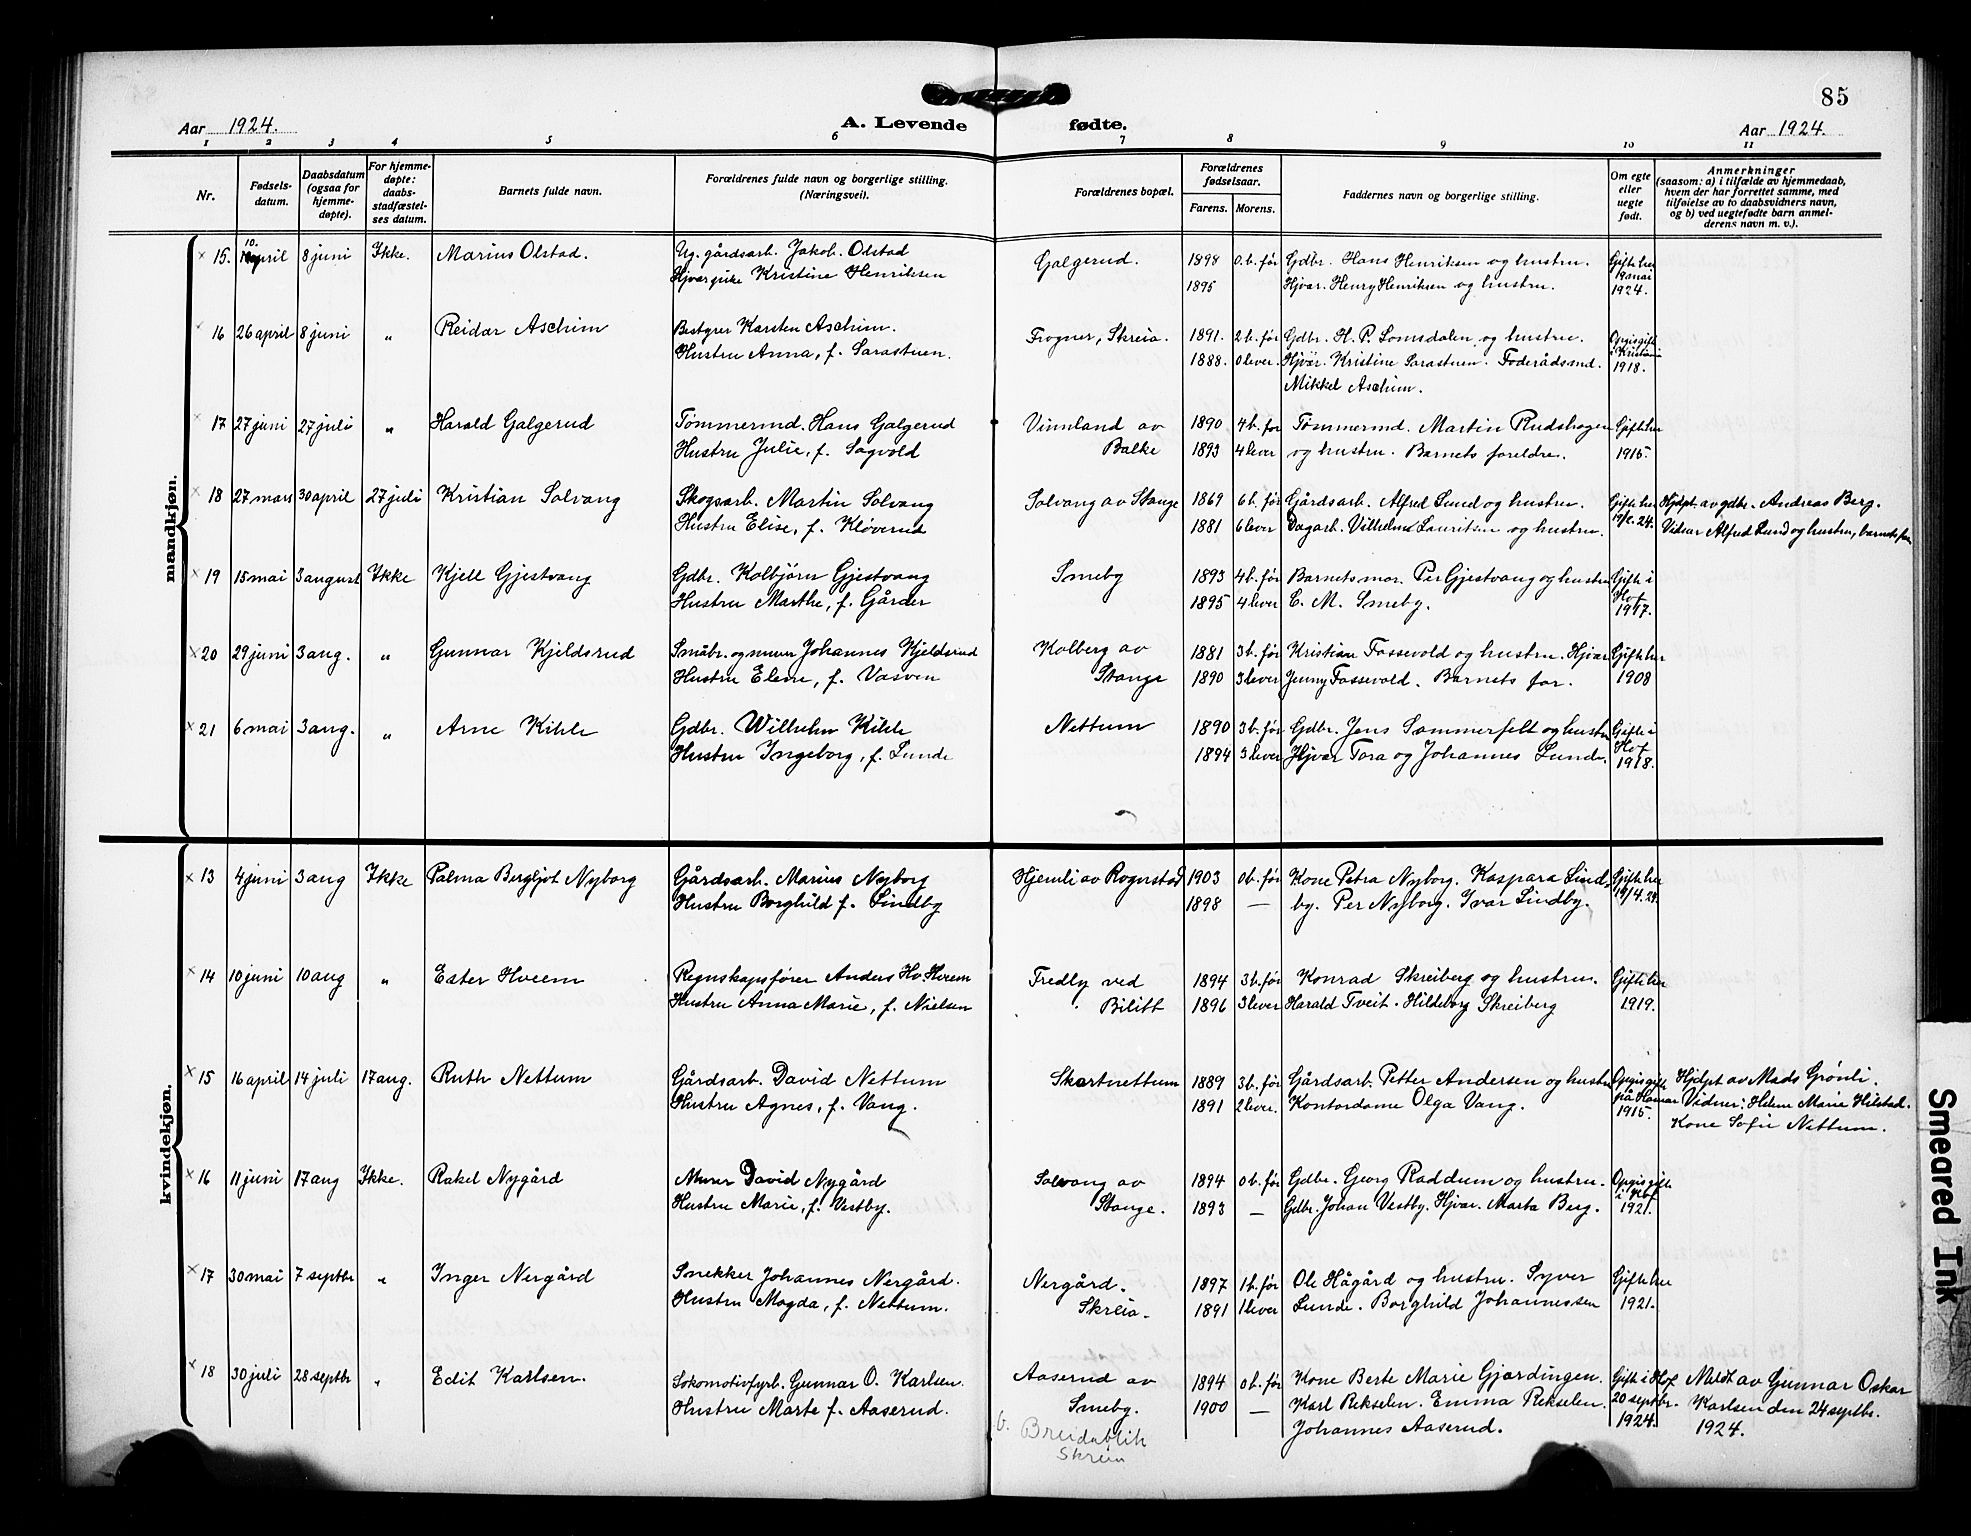 85
Aar 1924. A. Levende fødte. Aar 1924.
1 2 3 4 5 6 7 8 9 10 11
Nr.
Fødsels-
datum.
Daabsdatum
(ogsaa for
hjemme-
døpte).
For hjemme-
døpte:
daabs-
stadfæstel-
ses datum.
Barnets fulde navn.
Forældrenes fulde navn og borgerlige stilling.
(Næringsvei).
Forældrenes bopæl.
Forældrenes
fødselsaar.
Farens. Morens.
Faddernes navn og borgerlige stilling.
Om egte
eller
uegte
født.
Anmerkninger
(saasom: a) i tilfælde av hjemmedaab,
hvem der har forrettet samme, med
tilføielse av to daabsvidners navn,
og b) ved uegtefødte barn anmel-
derens navn m. v.).
mandkjøn.
10.
× 15. april 8 juni Ikke. Marius Olstad. Ug. gårdsarb. Jakob Olstad Galgerud. 1898 0 b. før Gdbr. Hans Henriksen og hustru. Gift her
Hjvarpike Kristine Henriksen 1895 Hjvar. Henry Henriksen og hustru. 19 mai
1924.
16 26 april 8 juni " Reidar Aschim Bestyrer Karsten Aschim. Frogner, Skreia. 1891. 2 b. før Gdbr. H. P. Lomsdalen og hustru. Opgis gift
Hustru Anna, f. Sarastuen. 1888. 0 lever. Hjvar. Kristine Sarastuen. Foderådsmd. i Kristiania
Mikkel Aschim. 1918.
× 17 27 juni 27 juli " Harald Galgerud Tømmermd. Hans Galgerud Vinnland av 1890 4 b. før Tømmermd. Martin Rudshagen Gift her
Hustru Julie, f. Sagvold Balke 1893 4 lever og hustru. Barnets foreldre. 1915.
× 18 27 mars 30 april 27 juli Kristian Solvang Skogsarb. Martin Solvang Solvang av Stange 1869 6 b. før Gårdsarb. Alfred Lund og hustru. Gift her Hjdpt. av gdbr. Andreas Berg.
Hustru Elise, f. Kløverud 1881 6 lever Dagarb. Vilhelm Lauritsen og hustru. 19/2. 24. Vidner Alfred Lund og hustru, barnets far
× 19 15 mai 3 august Ikke Kjell Gjestvang Gdbr. Kolbjørn Gjestvang Smeby 1893 4 b. før Barnets mor. Per Gjestvang og hustru Gift i
Hustru Marthe, f. Gårder 1895 4 lever C. M. Smeby. Hof
1917.
× 20 29 juni 3 ang. " Gunnar Kjeldsrud Småbr. og murer Johannes Kjeldsrud Kolberg av 1881 3 b. før Kristian Fossevold og hustru. Hjvar Gift her
Hustru Elene, f. Vasven Stange 1890 3 lever Jenny Fossevold. Barnets far. 1908
× 21 6 mai 3 ang. " Arne Kihle Gdbr. Wilhelm Kihle Nettum 1890 3 b. før Gdbr. Jens Sommerfelt og hustru Gift i
Hustru Ingeborg, f. Lunde 1894 3 lever Hjvar Tora og Johannes Lunde. Hof
1918.
kvindekjøn.
× 13 4 juni 3 ang Ikke Palma Bergljot Nyborg Gårdsarb. Marius Nyborg Hjemli av Rognstad 1903 0 b. før Kone Petra Nyborg. Kaspara Lind- Gift her
Hustru Borghild f. Lindby 1898 — by. Per Nyborg. Ivar Lindby. 19/4. 24.
× 14 10 juni 10 ang " Ester Hveem Regnskapsfører Anders Hv. Hveem Fredly ved 1894 3 b. før Konrad Skreiberg og hustru. Gift her
Hustru Anna Marie, f. Nielsen Bilitt 1896 3 lever Harald Tveit. Hildeborg Skreiberg 1919.
× 15 16 april 14 juli 17 ang. Ruth Nettum Gårdsarb. David Nettum Skartnettum 1889 3 b. før Gårdsarb. Petter Andersen og hustru Opgis gift Hjdpt av Mads Grønli.
Hustru Agnes, f. Vang. 1891 2 lever. Kontordame Olga Vang. på Hamar Vidner: Helene Marie Hilstad.
1915. Kone Sofie Nettum.
× 16 11 juni 17 ang Ikke. Rakel Nygård Murer David Nygård Solvang av 1894 0 b. før Gdbr. Georg Raddum og hustru. Opgis gift
Hustru Marie, f. Vestby. Stange. 1893 — Gdbr. Johan Vestby. Hjvar. Marta Berg. i Hof
1921.
× 17 30 mai 7 septbr " Inger Nergård Snekker Johannes Nergård. Nergård. 1897 1 b. før Ole Hågård og hustru. Syver Gift her
Hustru Magda, f. Nettum. Skreia. 1891 1 lever Lunde. Borghild Johannessen 1921.
× 18 30 juli 28 septbr " Edit Karlsen. Lokomotivfyrb. Gunnar O. Karlsen. Aaserud av 1894 0 b. før Kone Berte Marie Gjørdingen. Gift i Hof Meldt av Gunnar Oskar
Hustru Marte f. Aaserud. Smeby. 1900 — Karl Rekselen. Emma Rekselen. 20 septbr. Karlsen den 24 septbr.
Johannes Aaserud. 1924. 1924.
Breidablik
Skreia
Smeared Ink